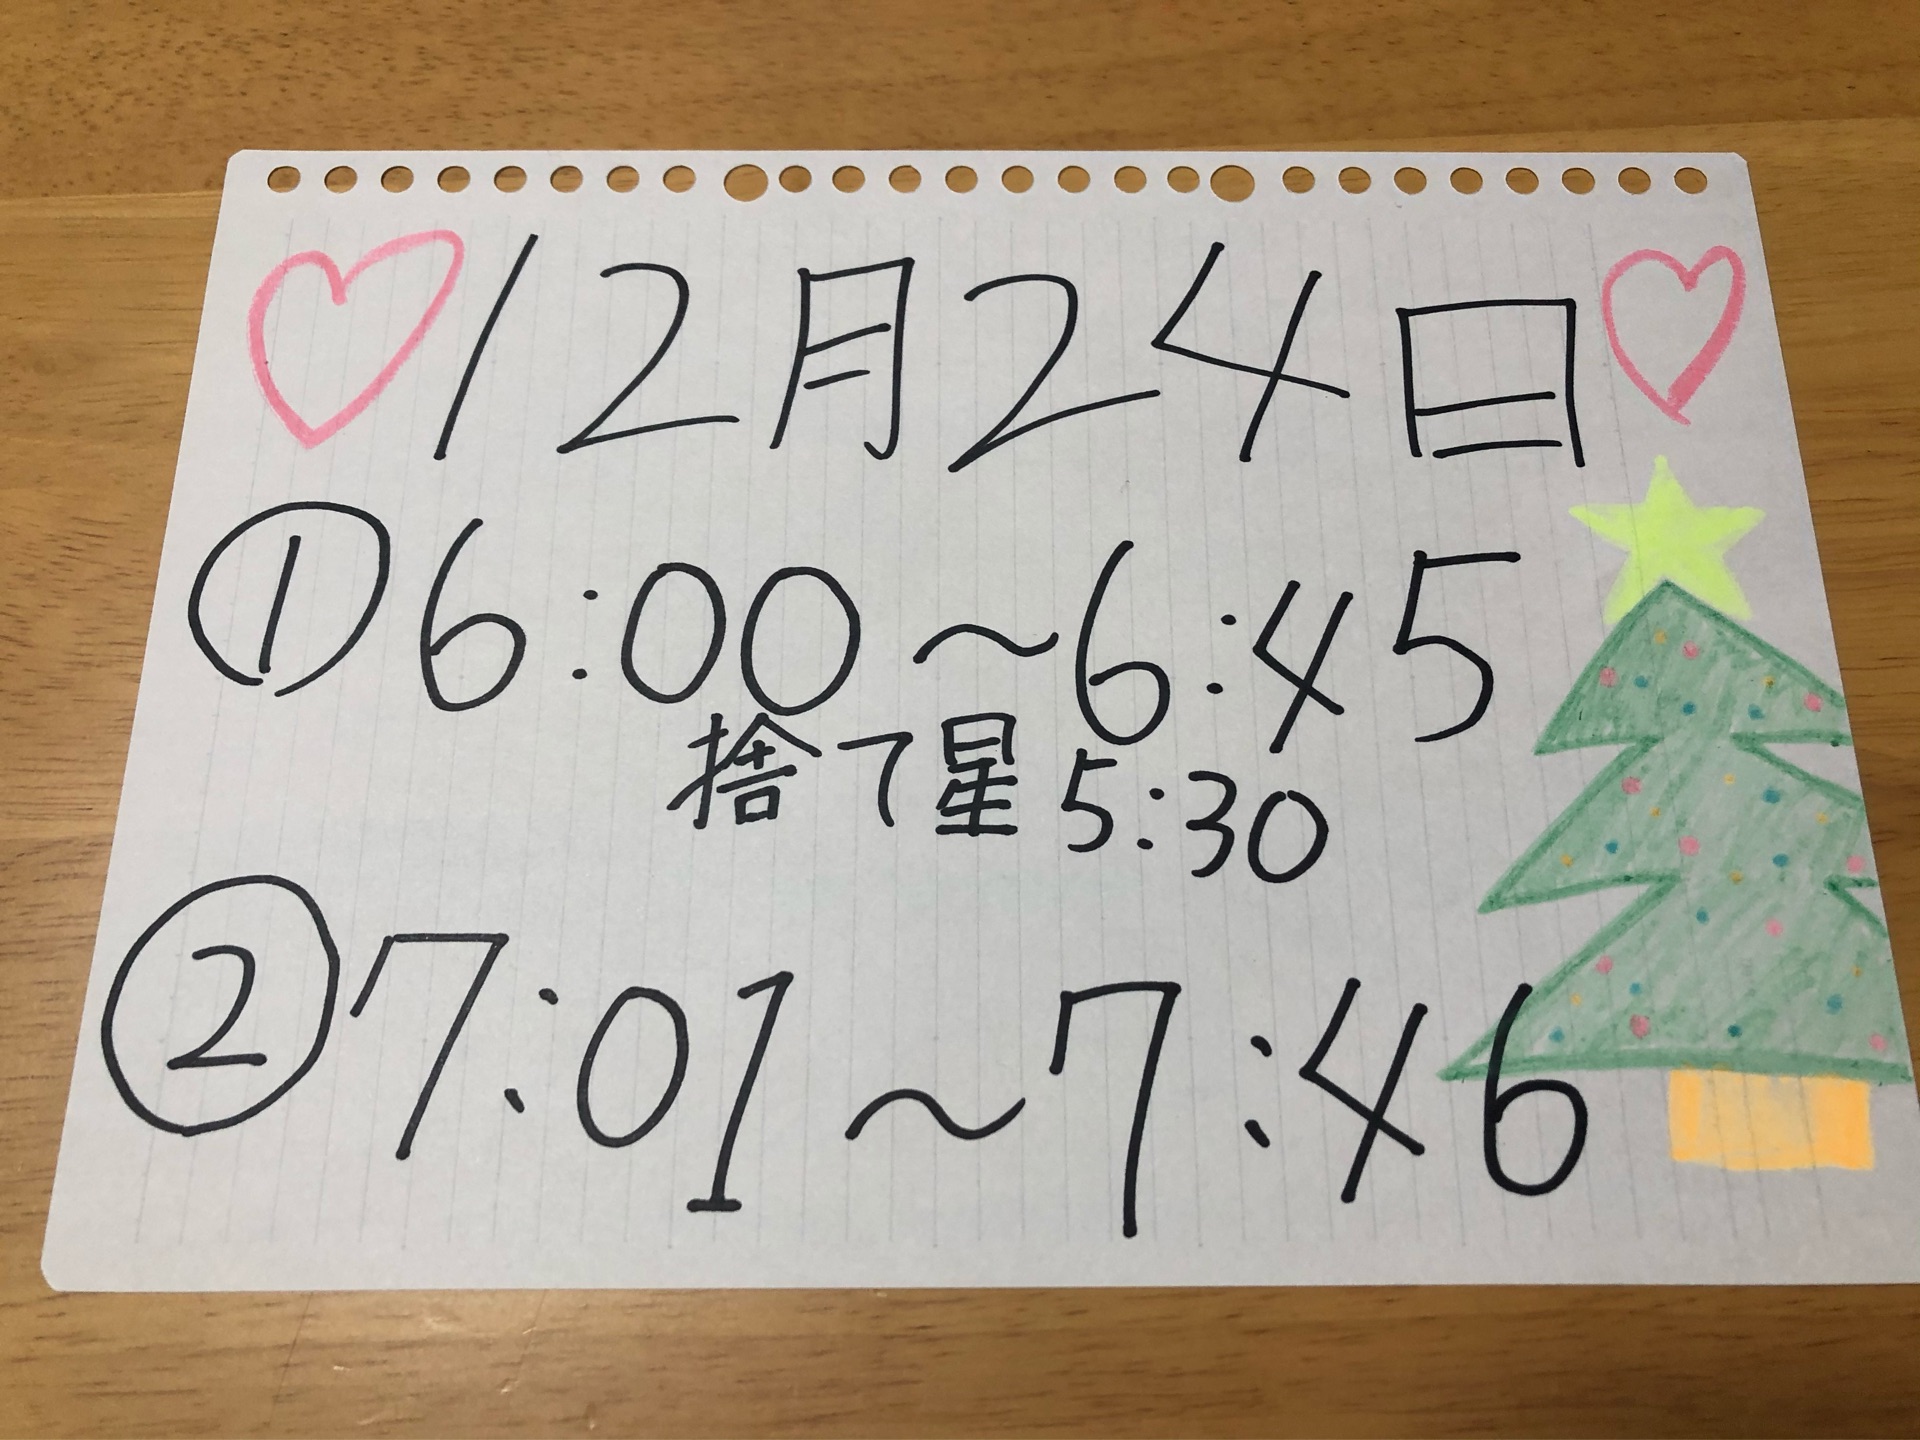 ♡12月24日♡
①6:00～6:45
捨て星5:30
②7:01～7:46